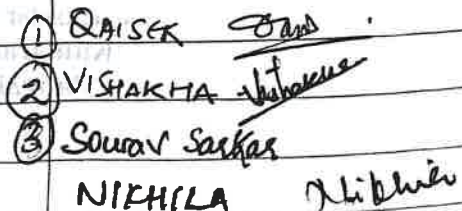 ① QAISER
② VISHAKHA Vishakha
③ Sourav Sarkar
NIKHILA Nikhila